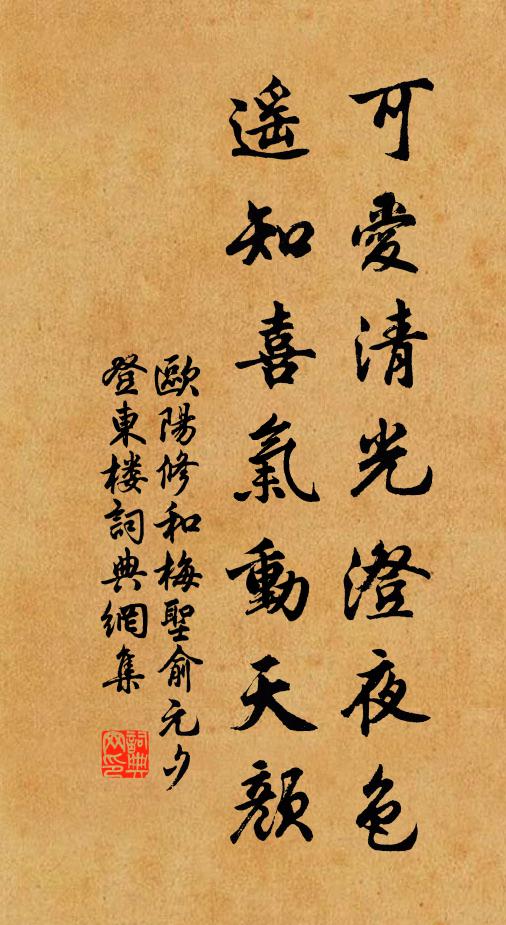 可愛清光澄夜色
遙知喜氣動天顏
歐陽修和梅聖俞元夕
登東楼詞典網集
詞典網印